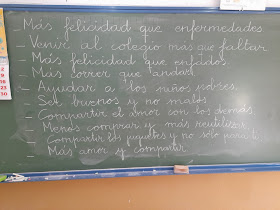 Más felicidad que enfermedades.
- Venir al colegio más que faltar.
- Más felicidad que enfados.
- Más correr que andar.
- Ayudar a los niños pobres.
- Ser buenos y no malos.
- Compartir el amor con los demás
- Menos comprar y más reutilizar.
- Compartir los juguetes y no sólo para
- Más amor y compartir